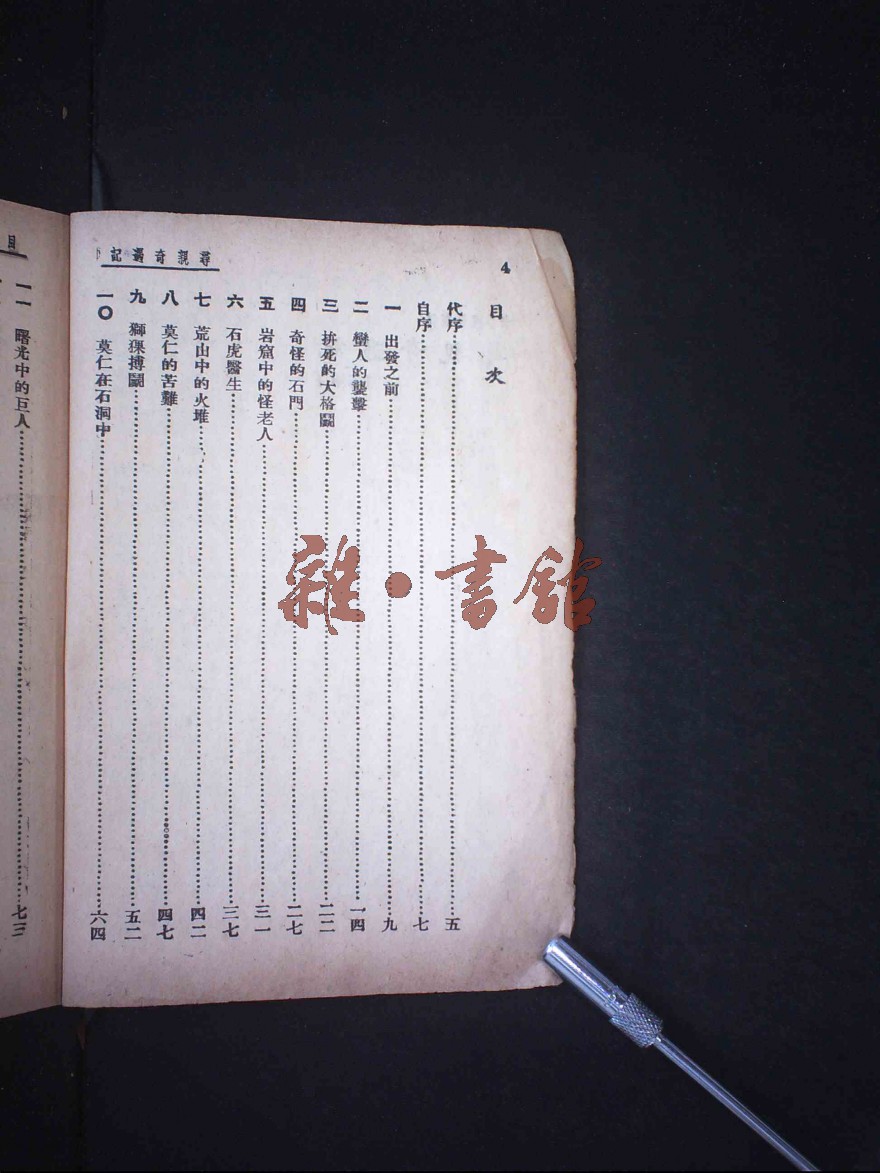 4
尋親奇遇記
目次
代序 五
自序 七
一 出發之前 九
二 蠻人的襲擊 一四
三 拚死的大格鬭 二二
四 奇怪的石門 二七
五 岩窟中的怪老人 三一
六 石虎醫生 三七
七 荒山中的火堆 四二
八 莫仁的苦難 四七
九 獅猓搏鬭 五二
一〇 莫仁在石洞中 六四
目
一一 曙光中的巨人 七三
雜·書館